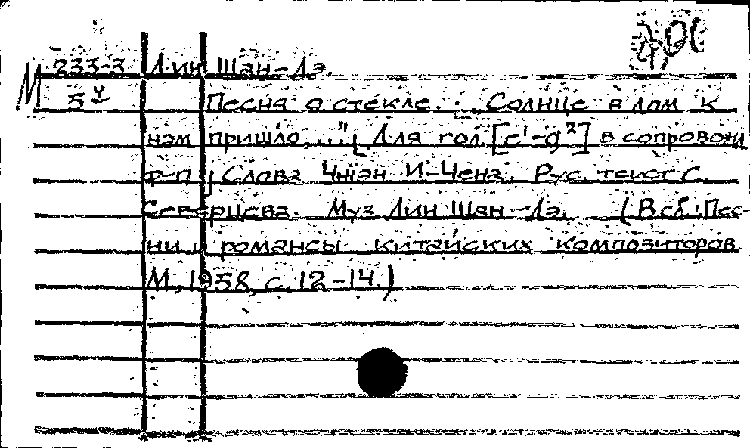 М 233-3 Лин Шан-Лэ.
5
Песня о стекле. „Солнце в дом к
нам пришло..." Для гол. [c¹-g²] в сопровожд.
ф-п. Слова Чжэн И-Чена. Рус. текст С.
Северцева. Муз. Лин Шан-Лэ. (В сб.: Пес-
ни и романсы китайских композиторов.
М., 1958, с. 12-14.)